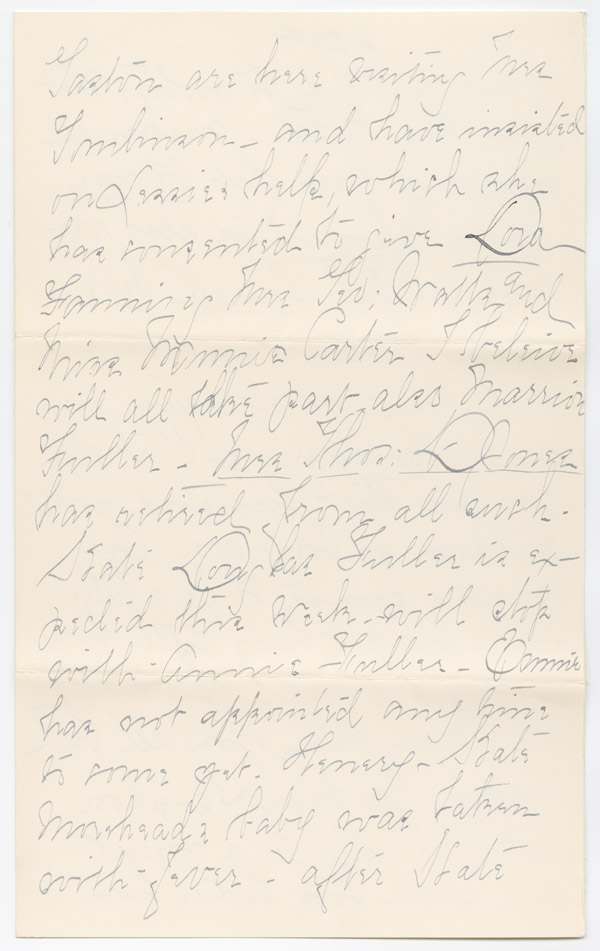 Gaston are here visiting Mrs
Tomlinson - and have insisted
on Lessies help, which she
has consented to give Lora
Fanning Mrs Geo: Watts and
Miss Minnie Carter I beleive
will all take part, also Marrion
Fuller - Mrs Thos: L Jones
has retired from all such.
State Fuller is ex-
pected this week. will stop
with - Annie Fuller - Emmie
has not appointed any time
to come yet. Henery - Kate
Moreheads baby was taken
with fever - after Kate